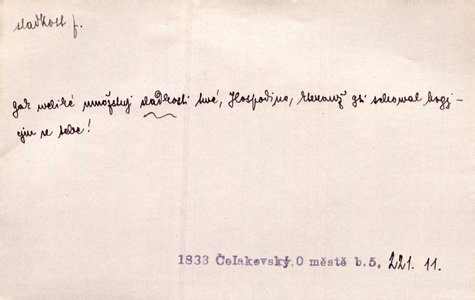 sladkost f.
gak weliké množstwj sladkosti twé, Hospodine, kterauž gsi schowal bogj-
cým se tebe!
1833 Čelakovský.O městě b.5. 221. 11.